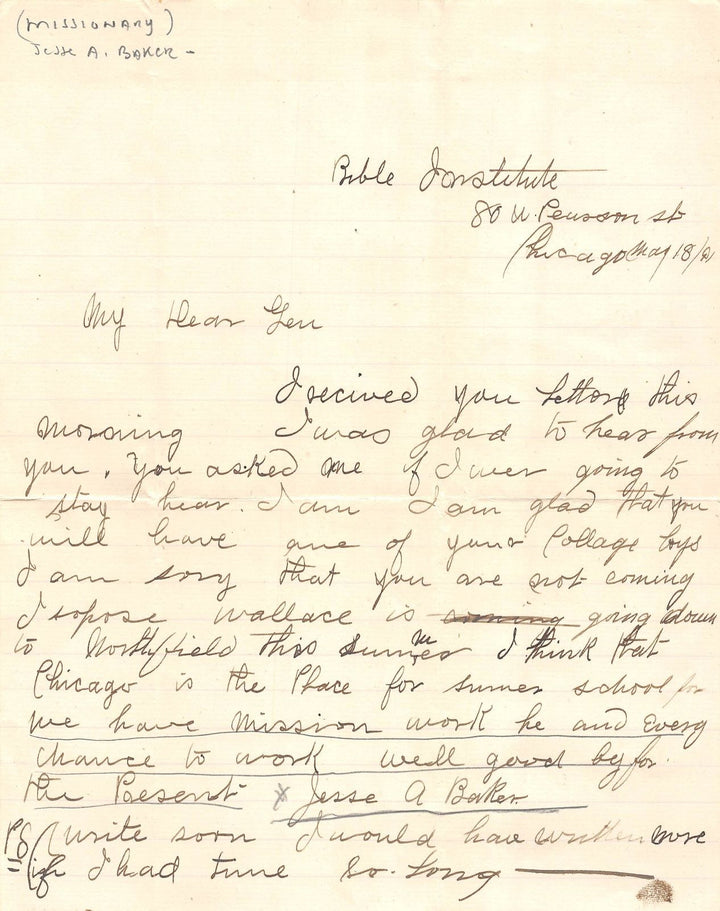 (MISSIONARY)
Jesse A. BAKER -
Bible Institute
80 W. Pearson st
Chicago May 18/91
My Dear Gen
I recived you letters this
morning I was glad to hear from
you. You asked me if I wer going to
stay hear. I am I am glad that you
will have one of your Collage boys
I am sory that you are not coming
I sopose Wallace is coming going down
to Northfield this summer I think that
Chicago is the Place for sumer school for
we have mission work he and Every
chance to work well good by for
the Present x Jesse A Baker
PS (write soon I would have written more
(if I had time So. Long